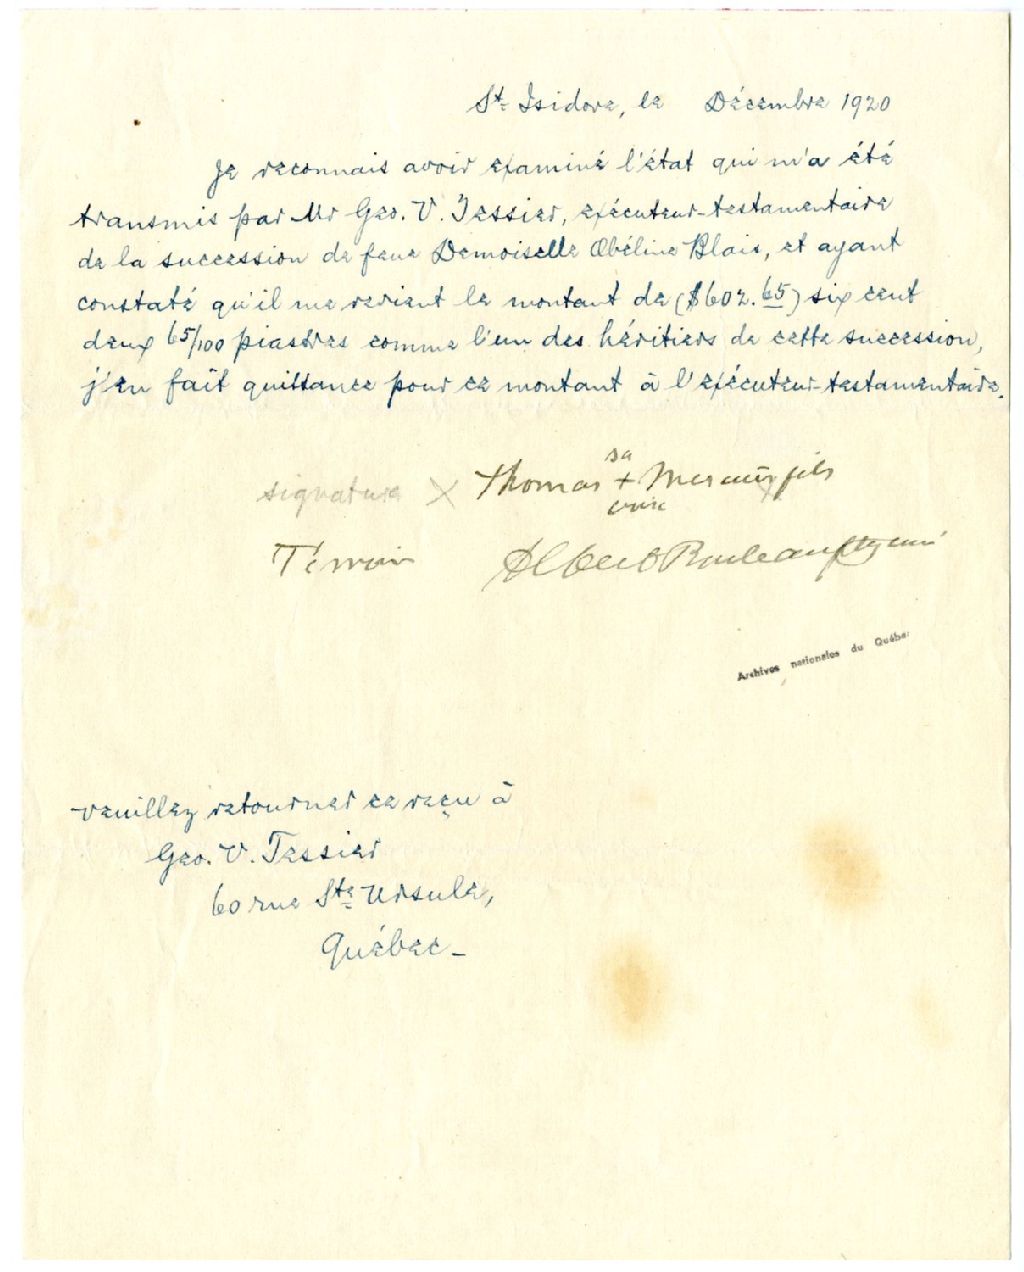 St- Isidore, le Décembre 1920
Je reconnais avoir examiné l'état qui m'a été
transmis par Mr Geo. V. Tessier, exécuteur-testamentaire
de la succession de feue Demoiselle Obéline Blais, et ayant
constaté qu'il me revient le montant de ($602.65) six cent
deux 65/100 piastres comme l'un des héritiers de cette succession,
j'en fait quittance pour ce montant à l'exécuteur-testamentaire.
sa
signature X Thomas + fils
croix
Témoin Albert
Archives nationales du Québec
Veuillez retourner ce reçu à
Geo. V. Tessier
60 rue Ste- Ursule,
Québec-